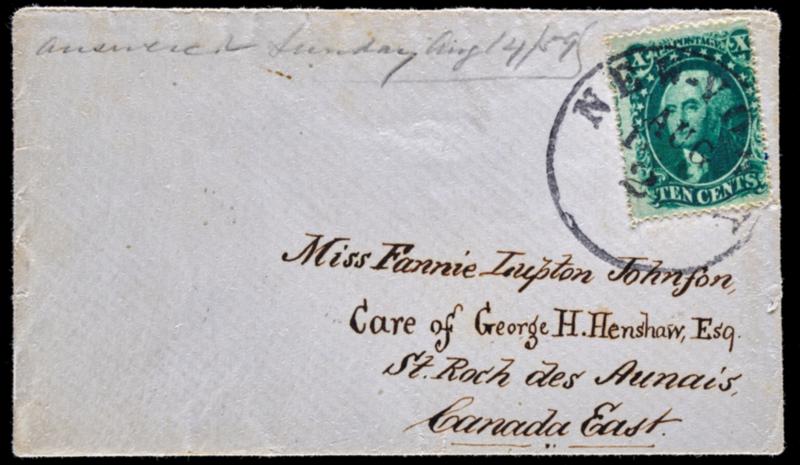 answered Sunday Aug 14/59
X U.S. POSTAGE X
NEW-YORK
AUG
12
TEN CENTS
Miss Fannie Lupton Johnson,
Care of George H. Henshaw, Esq.
St. Roch des Aunais,
Canada East.